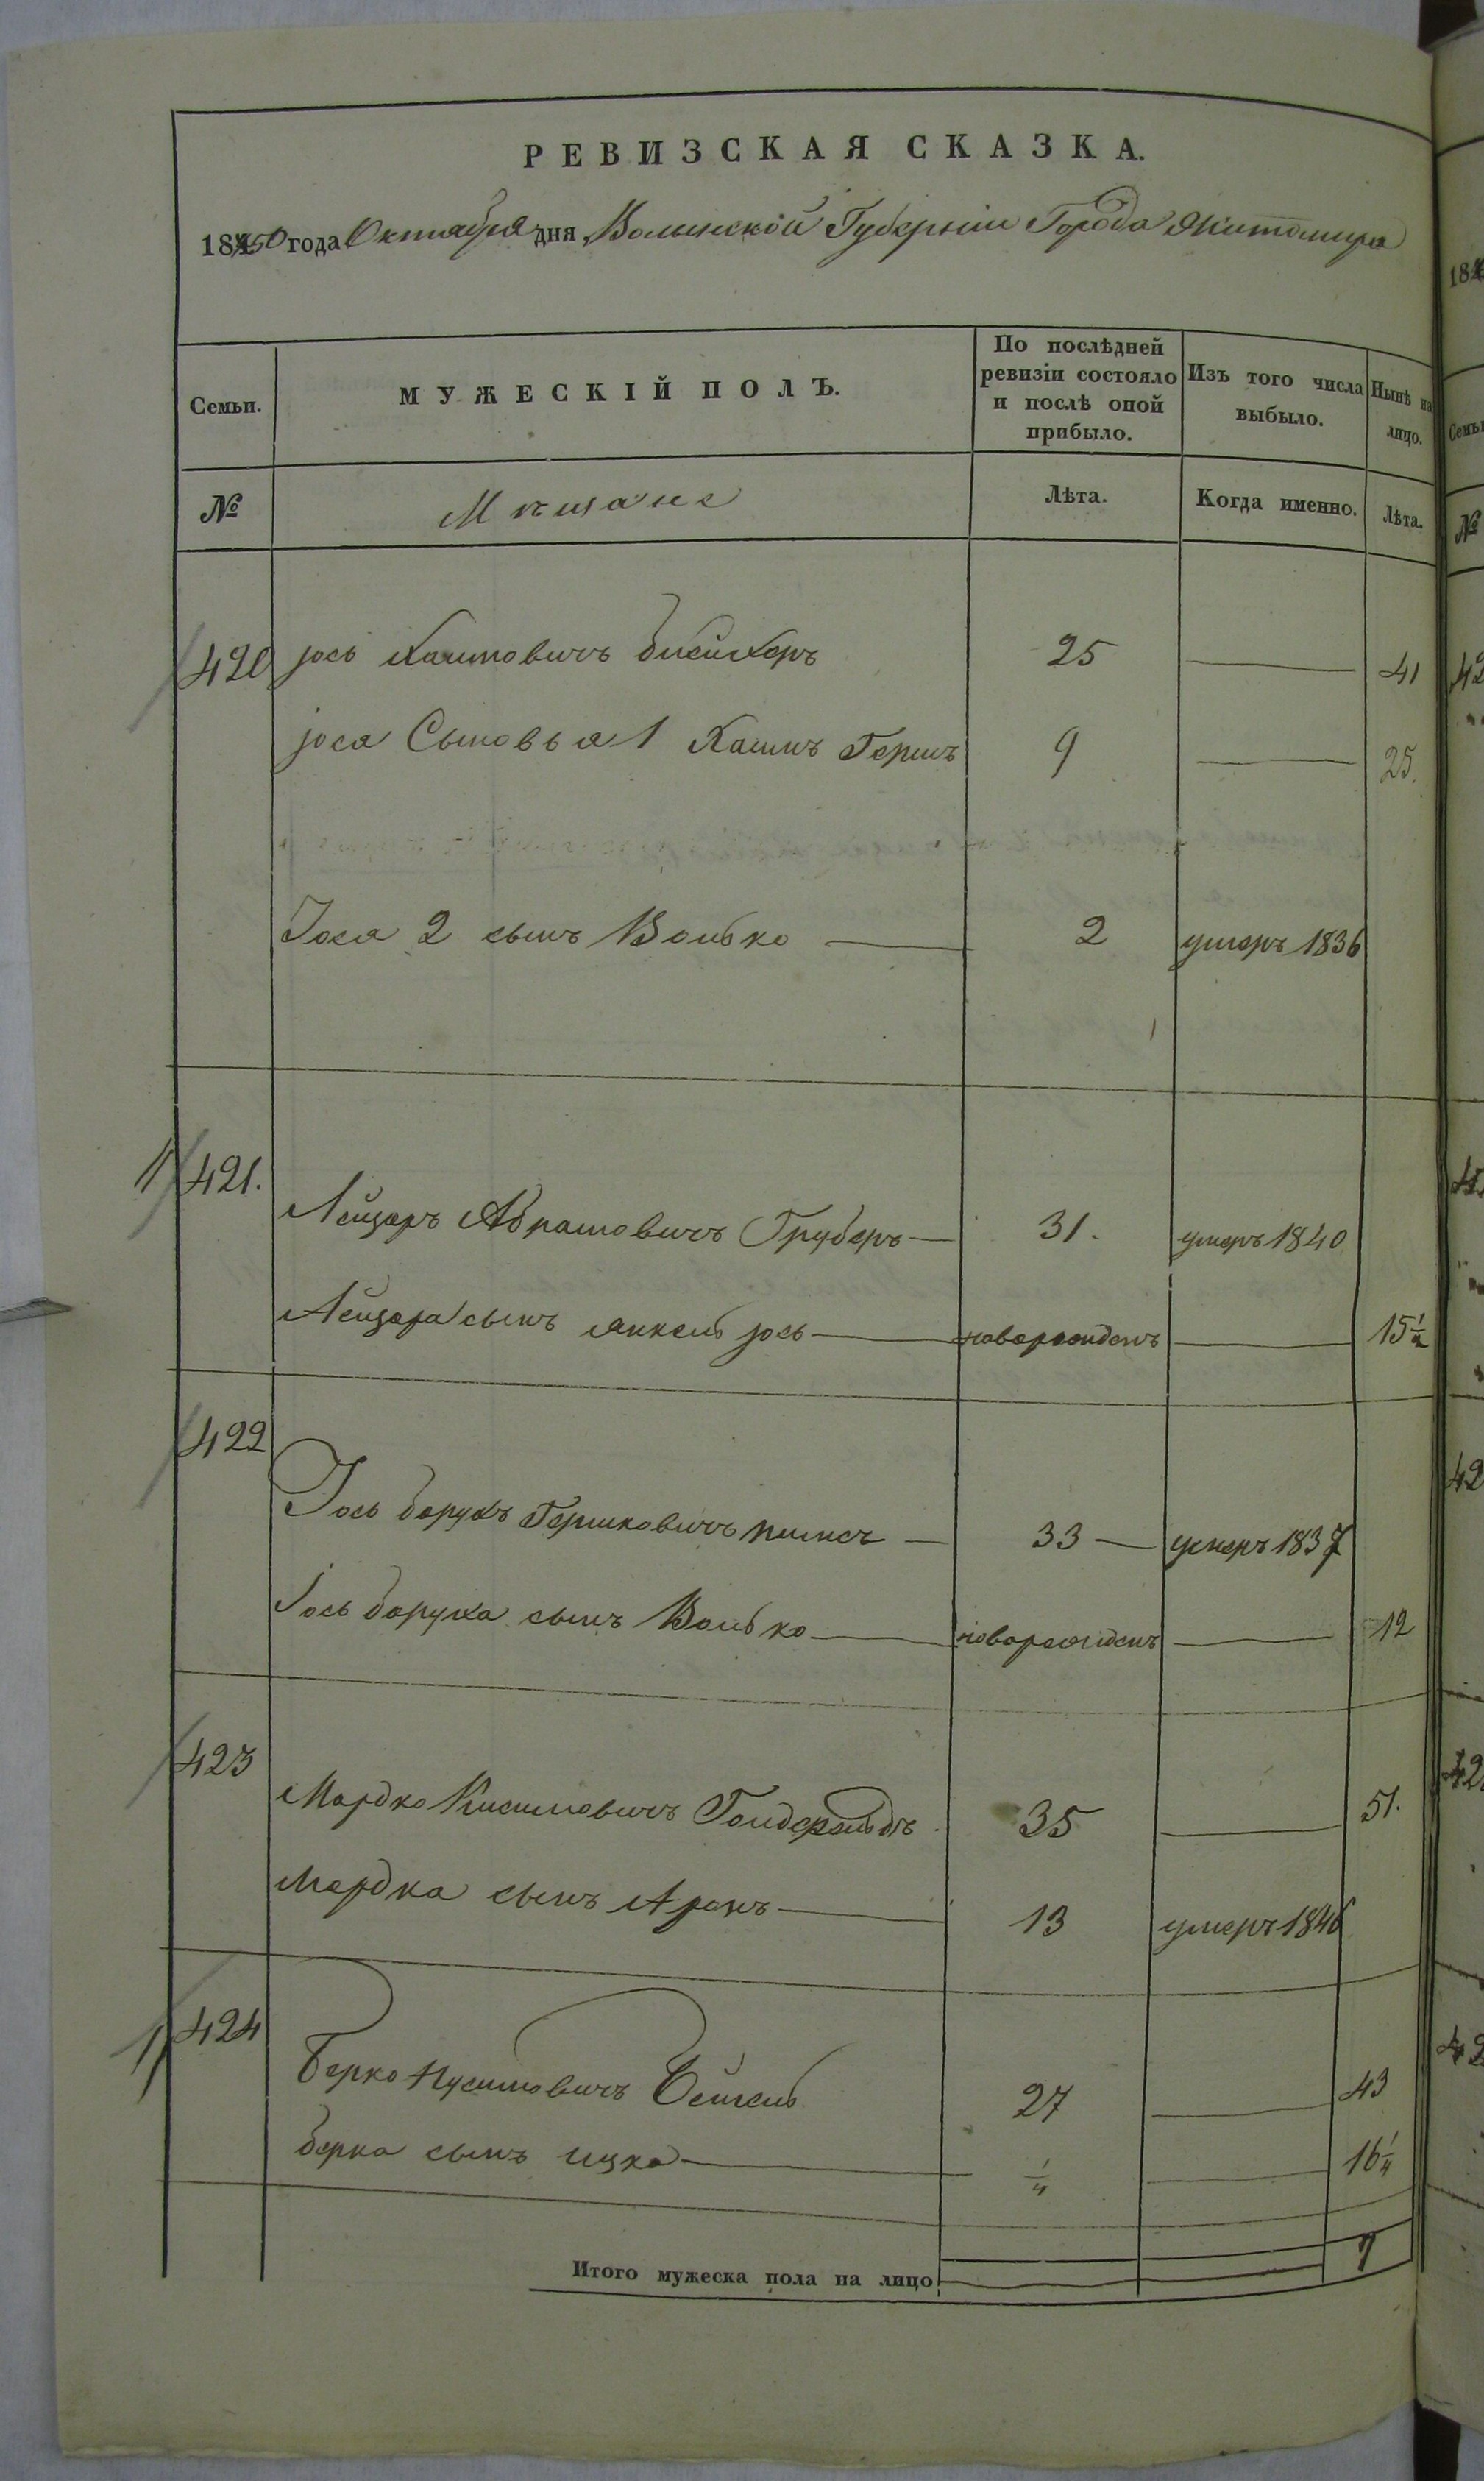 РЕВИЗСКАЯ СКАЗКА.
1850 года Октября дня Волынской Губерніи Города Житомира
Семьи.
МУЖЕСКІЙ ПОЛЪ.
По послѣдней ревизіи состояло и послѣ оной прибыло.
Изъ того числа выбыло.
Нынѣ на лицо.
№
Мѣщане
Лѣта.
Когда именно.
Лѣта.
420 іось Хаимовичъ 25 41
іося Сыновья 1 Хаимъ Гершъ 9 25.
Іося 2 сынъ Волько 2 умеръ 1836
421. Лейзоръ Абрамовичъ Груберъ 31. умеръ 1840
Лейзора сынъ Янкель іось новорожденъ 15½
422 Іось борухъ Гершковичъ 33 умеръ 1837
Іось боруха сынъ Волько новорожденъ 12
423 Мордко 35 51.
Мордка сынъ Аронъ 13 умеръ 1846
424 Берко 27 43
берка сынъ ицко ¼ 16¼
Итого мужеска пола на лицо 7